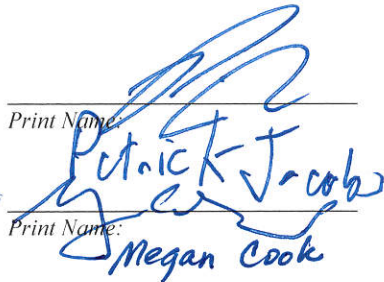 Print Name:
Patrick Jacobs
Print Name:
Megan Cook